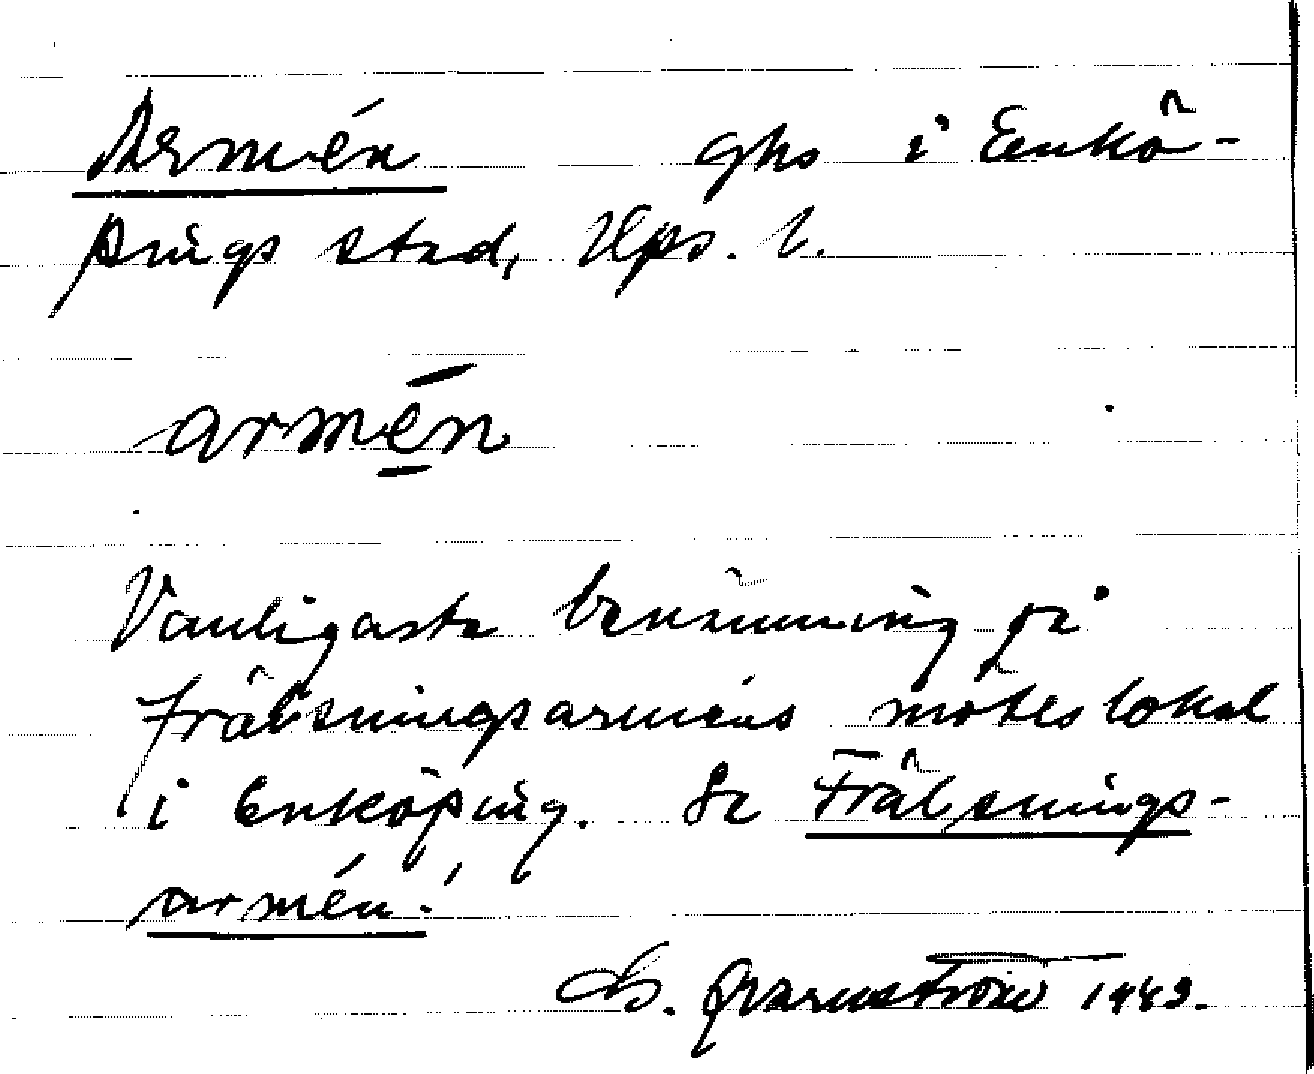 Armén ghs i Enkö-
pings stad, Ups. l.
armén
Vanligaste benämning på
Frälsningsarméns möteslokal
i Enköping. Se Frälsnings-
armén!
1989.